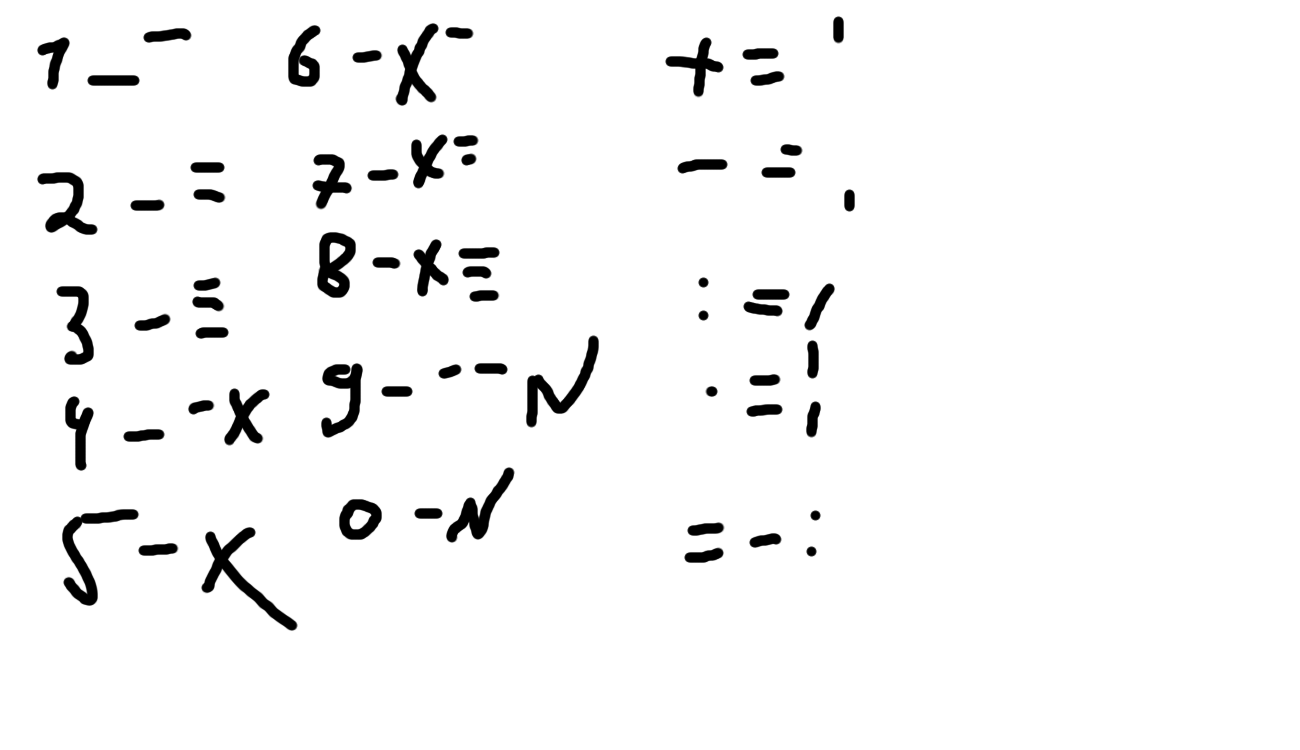 1 _ ‾
2 - =
3 - ≡
4 - -X
5 - X
6 - X-
7 - X=
8 - X≡
9 - --N
0 - N
+ = '
- = ,
: = /
· = ¦
= - :